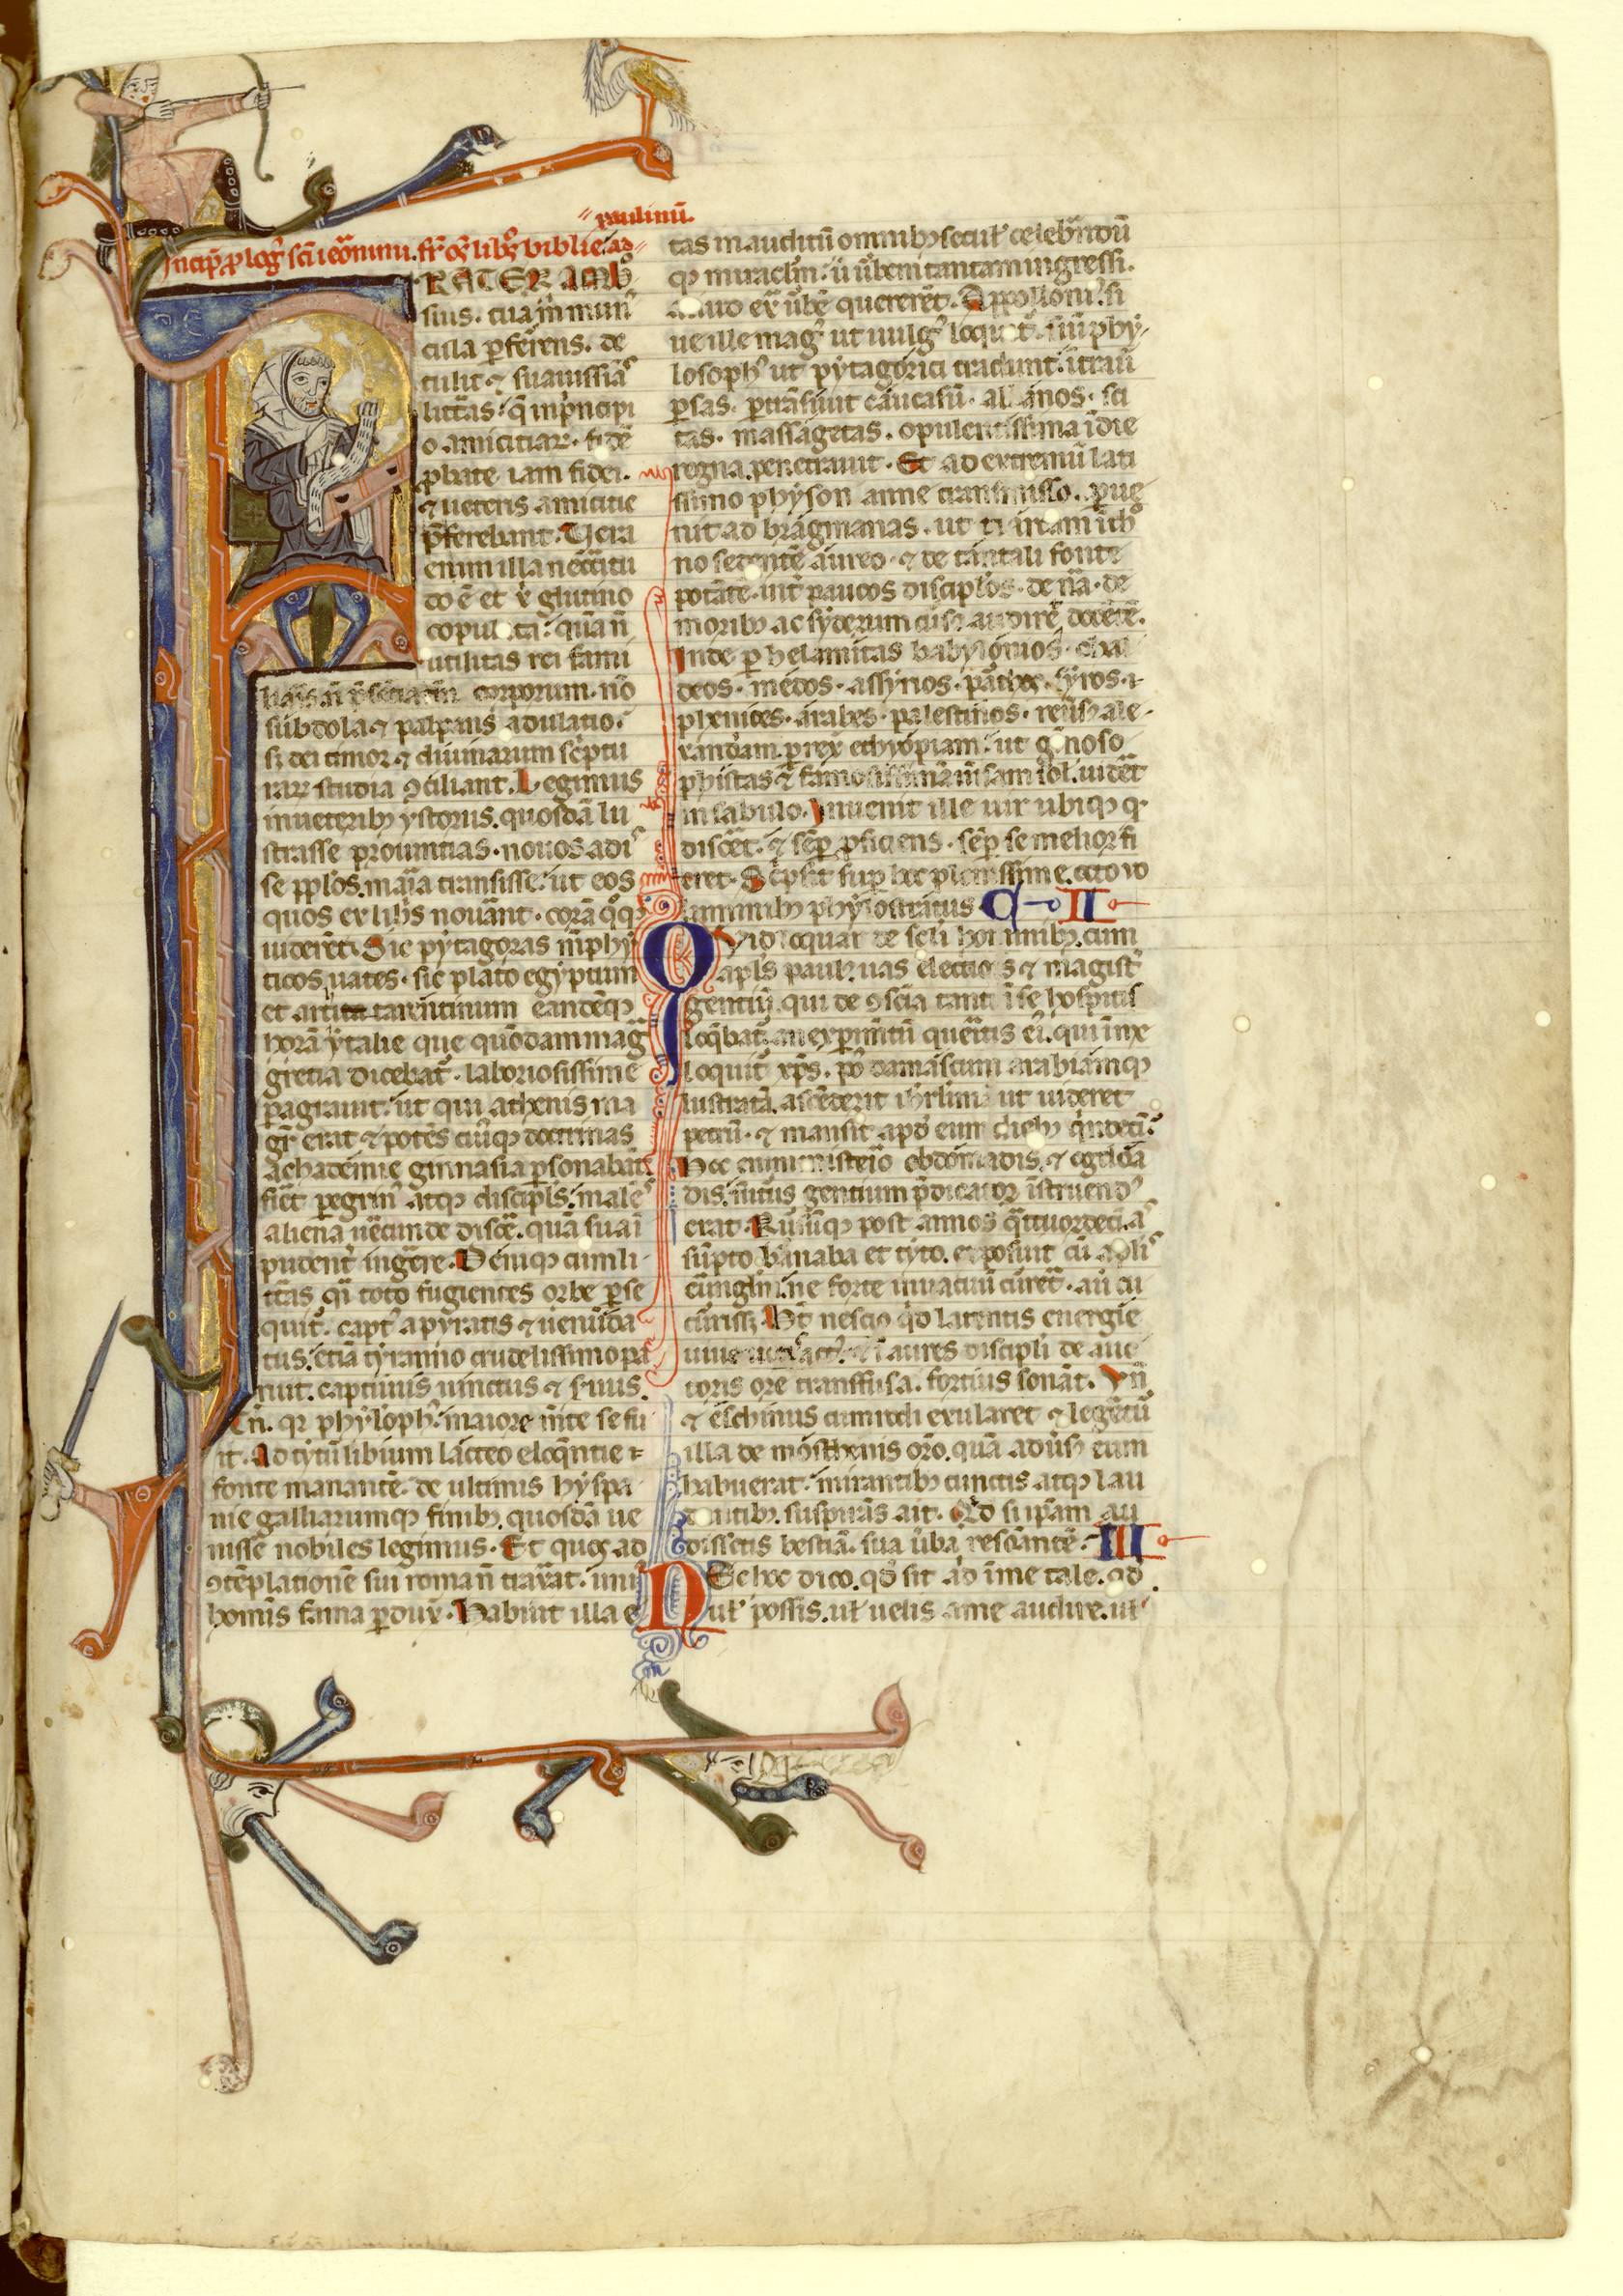 paulinū.
Incip̄ ꝓlogꝰ sc̄i ieronimi. sr̄ oēs libros biblie. ad
RATER AMBꝛO
sius. tua in mun
cula ꝑferens. de
tulit ⁊ suauissiās
litt̄as. q̄ in pͥncipi
o amicitiaꝝ. fidē
ꝓbate iam fidei.
⁊ ueteris amicitie
p̄ferebant. Uera
enim illa nc̄c̄itu
do ē et xp̄i glutino
copulata. quā n̄
utilitas rei fami
corporum. nō
subdola ⁊ palpans adulatio.
sꝫ dei timor ⁊ diuinarum scͥptu
raꝝ studia ꝯciliant. Legimus
in ueteribꝫ ystoriis. quosdā lu
strasse prouintias. nouos adis
se pp̄los. maria transisse. ut eos
quos ex libris nouāt. corā qͦqꝫ
uiderēt. Sic pytagoras mēphy
ticos uates. sic plato egyptum
et arcita tarentinum eandēqꝫ
horā ytalie que quōdam mag
grecia dicebat. laboriosissime
pagrauit. ut qui athenis ma
gr̄ erat ⁊ potēs cuiꝰqꝫ doctrinas
achademie gimnasia ꝑsonabāt
fiēt pegrinꝰ atqꝫ discipls. malēs
aliena uēcunde discē. quā sua ī
pudent̄ ingēre. Deniqꝫ cum li
ttās q̄i toto fugientes orbe ꝑse
quit̄. captꝰ a pyratis ⁊ uenūda
tus. etiā tyranno crudelissimo pa
ruit. captiuus uinctus ⁊ seruus.
Tn̄. qꝛ phylophꝰ. maiore mīte se fu
it. Ad tytū libium lacteo eloqͥntie
fonte manantē. de ultimis hyspa
nie galliarumqꝫ finibꝫ. quosdā ue
nisse nobiles legimus. Et quos ad
ꝯtēplationē sui roman̄ traxat. uniꝰ
hominis fama ꝑduxͥ. Habuit illa e
tas inauditū omnibꝫ seculꝭ celebrādū
qꝫ miraclm̄. ut urbem tantam ingressi.
aliud exͣ urbē quererēt. Appolloniꝰ. si
ue ille magꝰ ut uulgꝰ loquit̄. siue phy
losophꝰ ut pytagorici tradunt. ītrauit
ꝑsas. ꝑtrāsiuit caucasū. albanos. sci
tas. massagetas. opulentissima īdie
regna penetrauit. Et ad extremū lati
ssimo physon amne transmisso. ꝑue
nit ad bragmanas. ut hiarcam ī th̄o
no sedentē aureo. ⁊ de tantali fonte
potātē. int̄ paucos disciplōs. de n̄a. de
moribꝫ ac syderum cursu audiret docētē.
Inde ꝑ helamitas babylonios. chal
deos. medos. assyrios. parthos. syros.
phenices. arabes. palestinos. reūsꝰ ale
xandām. ꝑrexͥ ethyopiam. ut gͥnoso
phistas ⁊ famosissimā m̄sam sol̄. uidēt
in sabulo. Inuenit ille uir ubiqꝫ qͦ
discēt. ⁊ semꝑ ꝓficiens. semꝑ se melior fi
eret. Scͥpsit suꝑ hec plenissime. octo uo
luminibꝫ phylostratus. C II
Quid loquar de secli hominibꝫ. cum
apl̄s paulꝰ uas electionis ⁊ magistͬ
gentiū. qui de ꝯscīa tanti ī se hospitis
loq̄bat̄. an expimtū queritis eiꝰ. qui ī me
loquit̄ xp̄s. pꝰ damascum arabiāmqꝫ
lustratā. ascēderit ih̄rlimā ut uideret
petrū. ⁊ mansit apd̄ eum diebꝫ qͥndeci.
Hoc enim misteͥo ebdōmadis ⁊ ogdoā
dis. futurꝰ gentium p̄dicator īstruendꝰ
erat. Rursūqꝫ post annos qͣttuordeci. as
sūpto barnaba et tyto. exposuit cū aplis
euāglm̄. ne forte in uacuū curret. aut cu
curissꝫ. Ht̄ nescio qͥd latentis energie
aures discipli de auc
toris ore transfusa. fortius sonāt. Vn̄
⁊ eschinus cum rodi exularet ⁊ legerētur
illa demosthenis orō. quā aduersus eum
habuerat. mirantibꝫ cunctis atqꝫ lau
dantibꝫ. suspirās ait. Qͥd si ip̄am au
dissetis bestiā. sua uerba resonantē. III
NEc hoc dico. qͦd sit aliqͥd ī me tale. qd̄
uel possis. uel uelis a me audire. uel